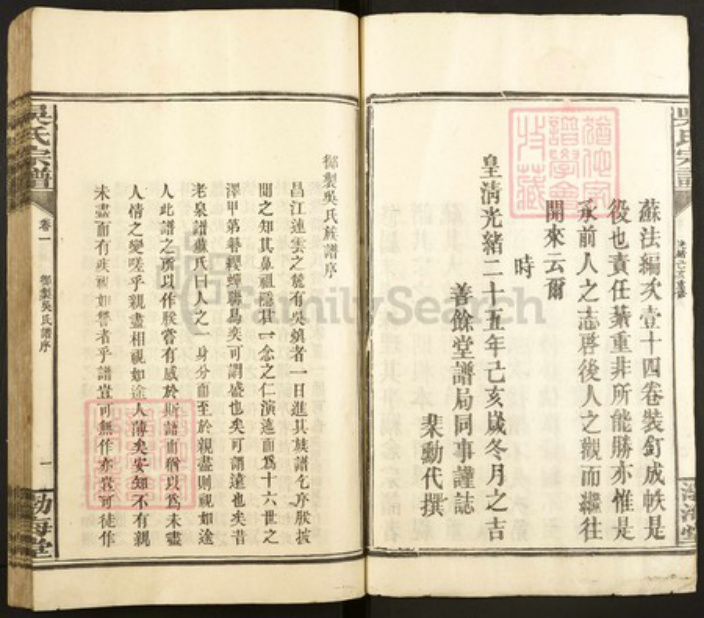 吳氏宗譜
蘇法編次壹十四卷裝釘成帙是
役也責任綦重非所能勝亦惟是
承前人之志啓後人之觀而繼往
開來云爾
時
皇清光緒二十五年己亥歲冬月之吉
善餘堂譜局同事謹誌
棐勳代撰
渤海堂
御製吳氏族譜序
昌江連雲之麓有吳鎮者一日進其族譜乞序朕披
閱之知其鼻祖隱其一念之仁演遠而為十六世之
澤甲第簪纓蟬聯舄奕可謂盛也矣可謂遠也矣昔
老泉譜蘇氏曰人之一身分而至於親盡則視如途
人此譜之所以作朕嘗有感於斯譜而猶以為未盡
人情之變嗟乎親盡相視如途人薄矣安知不有親
未盡而有疾視如讐者乎譜豈可無作亦豈可徒作
吳氏宗譜
卷一
御製吳氏譜序
一
渤海堂
FamilySearch